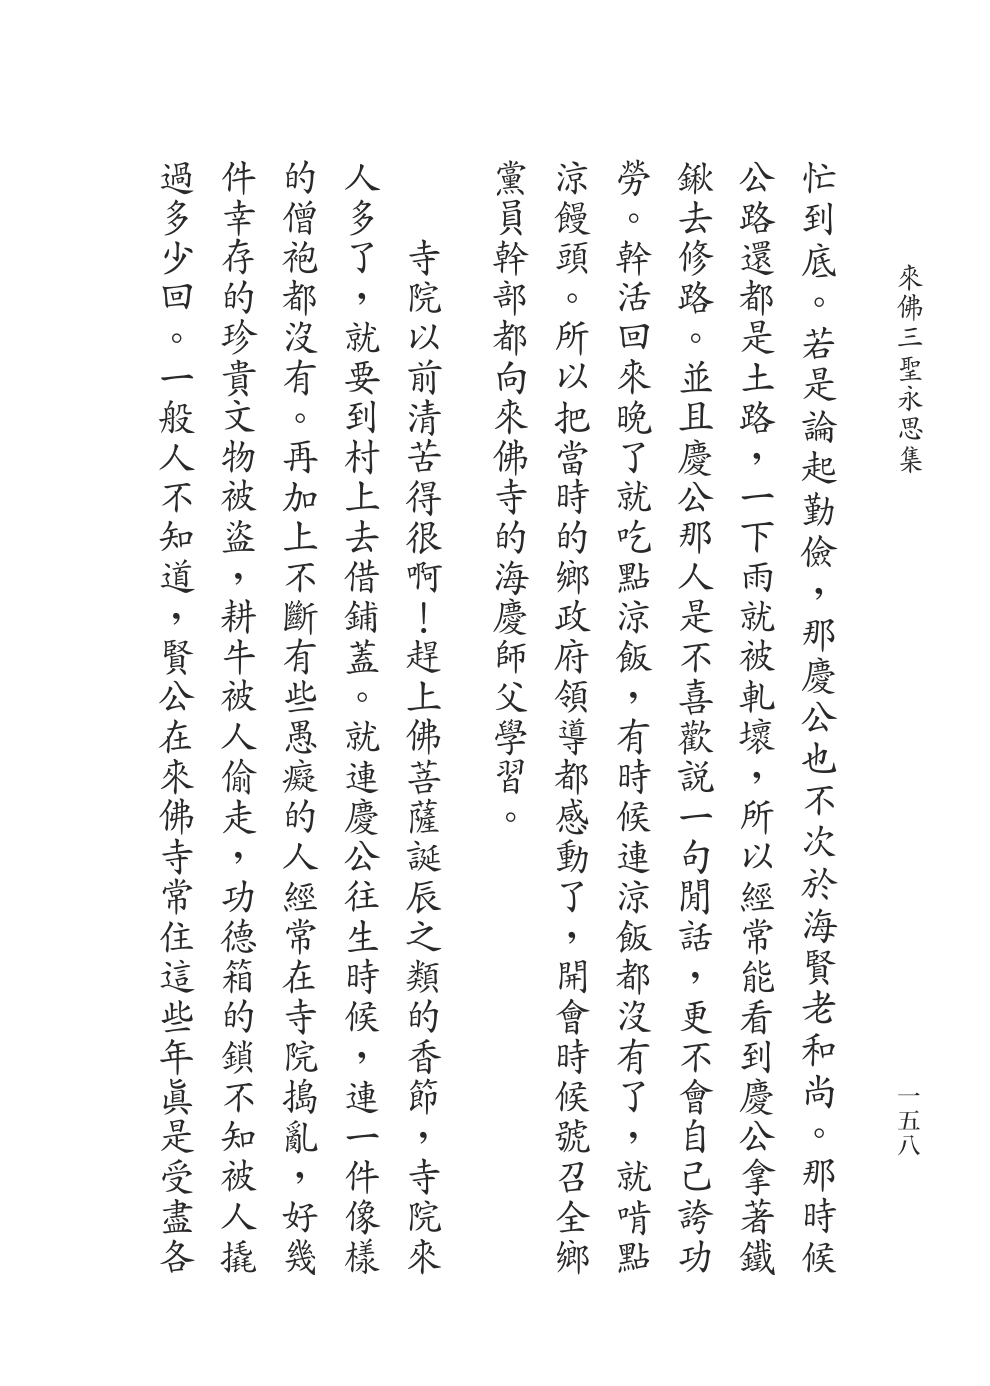 來佛三聖永思集
一五八
忙到底。若是論起勤儉，那慶公也不次於海賢老和尚。那時候
公路還都是土路，一下雨就被軋壞，所以經常能看到慶公拿著鐵
鍬去修路。並且慶公那人是不喜歡説一句閒話，更不會自己誇功
勞。幹活回來晚了就吃點涼飯，有時候連涼飯都沒有了，就啃點
涼饅頭。所以把當時的鄉政府領導都感動了，開會時候號召全鄉
黨員幹部都向來佛寺的海慶師父學習。
寺院以前清苦得很啊！趕上佛菩薩誕辰之類的香節，寺院來
人多了，就要到村上去借鋪蓋。就連慶公往生時候，連一件像樣
的僧袍都沒有。再加上不斷有些愚癡的人經常在寺院搗亂，好幾
件幸存的珍貴文物被盜，耕牛被人偷走，功德箱的鎖不知被人撬
過多少回。一般人不知道，賢公在來佛寺常住這些年眞是受盡各